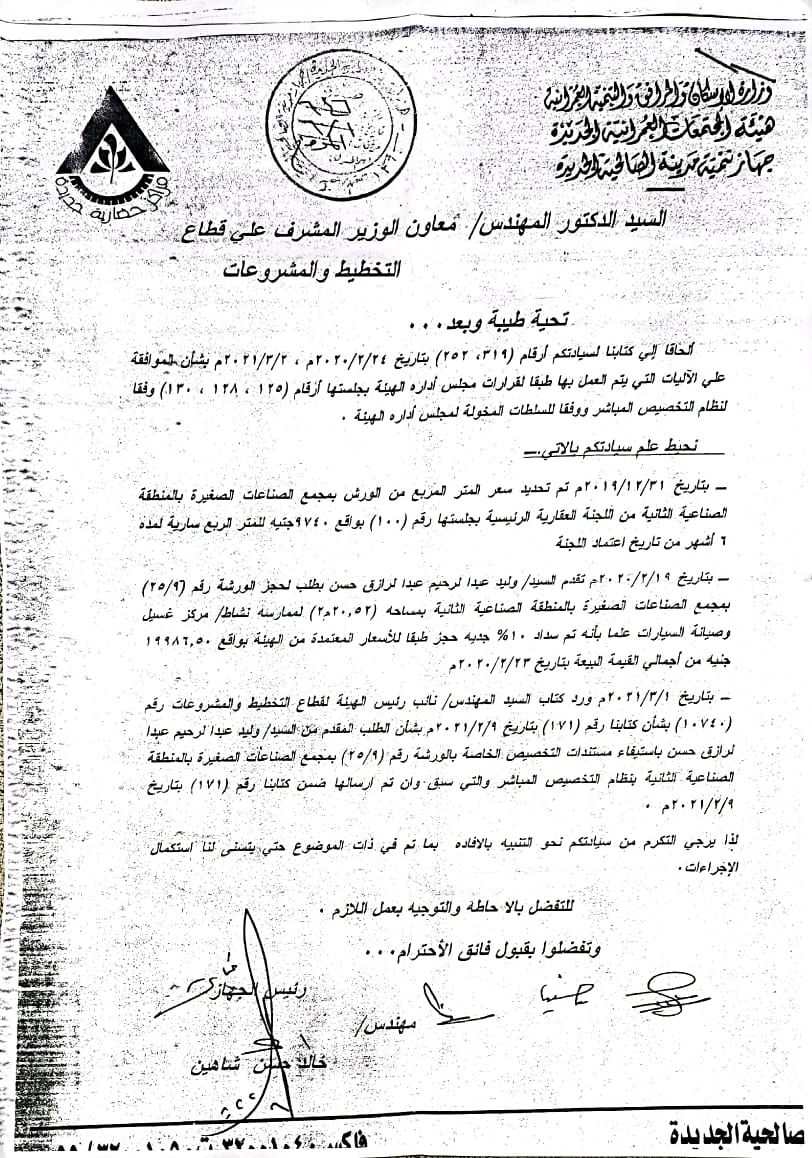 وزارة الإسكان والمرافق والتنمية العمرانية
هيئة المجتمعات العمرانية الجديدة
جهاز تنمية مدينة الصالحية الجديدة
مراكز حضارية جديدة
السيد الدكتور المهندس/ معاون الوزير المشرف علي قطاع
التخطيط والمشروعات
تحية طيبة وبعد...
ألحاقا إلي كتابنا لسيادتكم أرقام (٣١٩، ٢٥٢) بتاريخ ٢٠٢٠/٢/٢٤م ، ٢٠٢١/٣/٢م بشأن الموافقة
علي الآليات التي يتم العمل بها طبقا لقرارات مجلس أداره الهيئة بجلستها أرقام (١٢٥ ، ١٢٨ ، ١٣٠) وفقا
لنظام التخصيص المباشر ووفقا للسلطات المخولة لمجلس أداره الهيئة .
نحيط علم سيادتكم بالاتي:ـ
ـ بتاريخ ٢٠١٩/١٢/٣١م تم تحديد سعر المتر المربع من الورش بمجمع الصناعات الصغيرة بالمنطقة
الصناعية الثانية من اللجنة العقارية الرئيسية بجلستها رقم (١٠٠) بواقع ٩٧٤٠جنيه للمتر الربع سارية لمده
٦ أشهر من تاريخ اعتماد اللجنة
ـ بتاريخ ٢٠٢٠/٢/١٩م تقدم السيد/ وليد عبدا لرحيم عبدا لرازق حسن بطلب لحجز الورشة رقم (٢٥/٩)
بمجمع الصناعات الصغيرة بالمنطقة الصناعية الثانية بمساحه (٢٠,٥٢م٢) لممارسة نشاط/ مركز غسيل
وصيانة السيارات علما بأنه تم سداد ١٠% جديه حجز طبقا للأسعار المعتمدة من الهيئة بواقع ١٩٩٨٦,٥٠
جنيه من أجمالي القيمة البيعة بتاريخ ٢٠٢٠/٢/٢٣م
ـ بتاريخ ٢٠٢١/٣/١م ورد كتاب السيد المهندس/ نائب رئيس الهيئة لقطاع التخطيط والمشروعات رقم
(١٠٧٤٠) بشأن كتابنا رقم (١٧١) بتاريخ ٢٠٢١/٢/٩م بشأن الطلب المقدم من السيد/ وليد عبدا لرحيم عبدا
لرازق حسن باستيفاء مستندات التخصيص الخاصة بالورشة رقم (٢٥/٩) بمجمع الصناعات الصغيرة بالمنطقة
الصناعية الثانية بنظام التخصيص المباشر والتي سبق وان تم ارسالها ضمن كتابنا رقم (١٧١) بتاريخ
٢٠٢١/٢/٩م .
لذا يرجي التكرم من سيادتكم نحو التنبيه بالافاده بما تم في ذات الموضوع حتي يتسنى لنا استكمال
الإجراءات.
للتفضل بالا حاطة والتوجيه بعمل اللازم .
وتفضلوا بقبول فائق الأحترام...
رئيس الجهاز
مهندس/
خالد حسن شاهين
صالحية الجديدة
فاكس